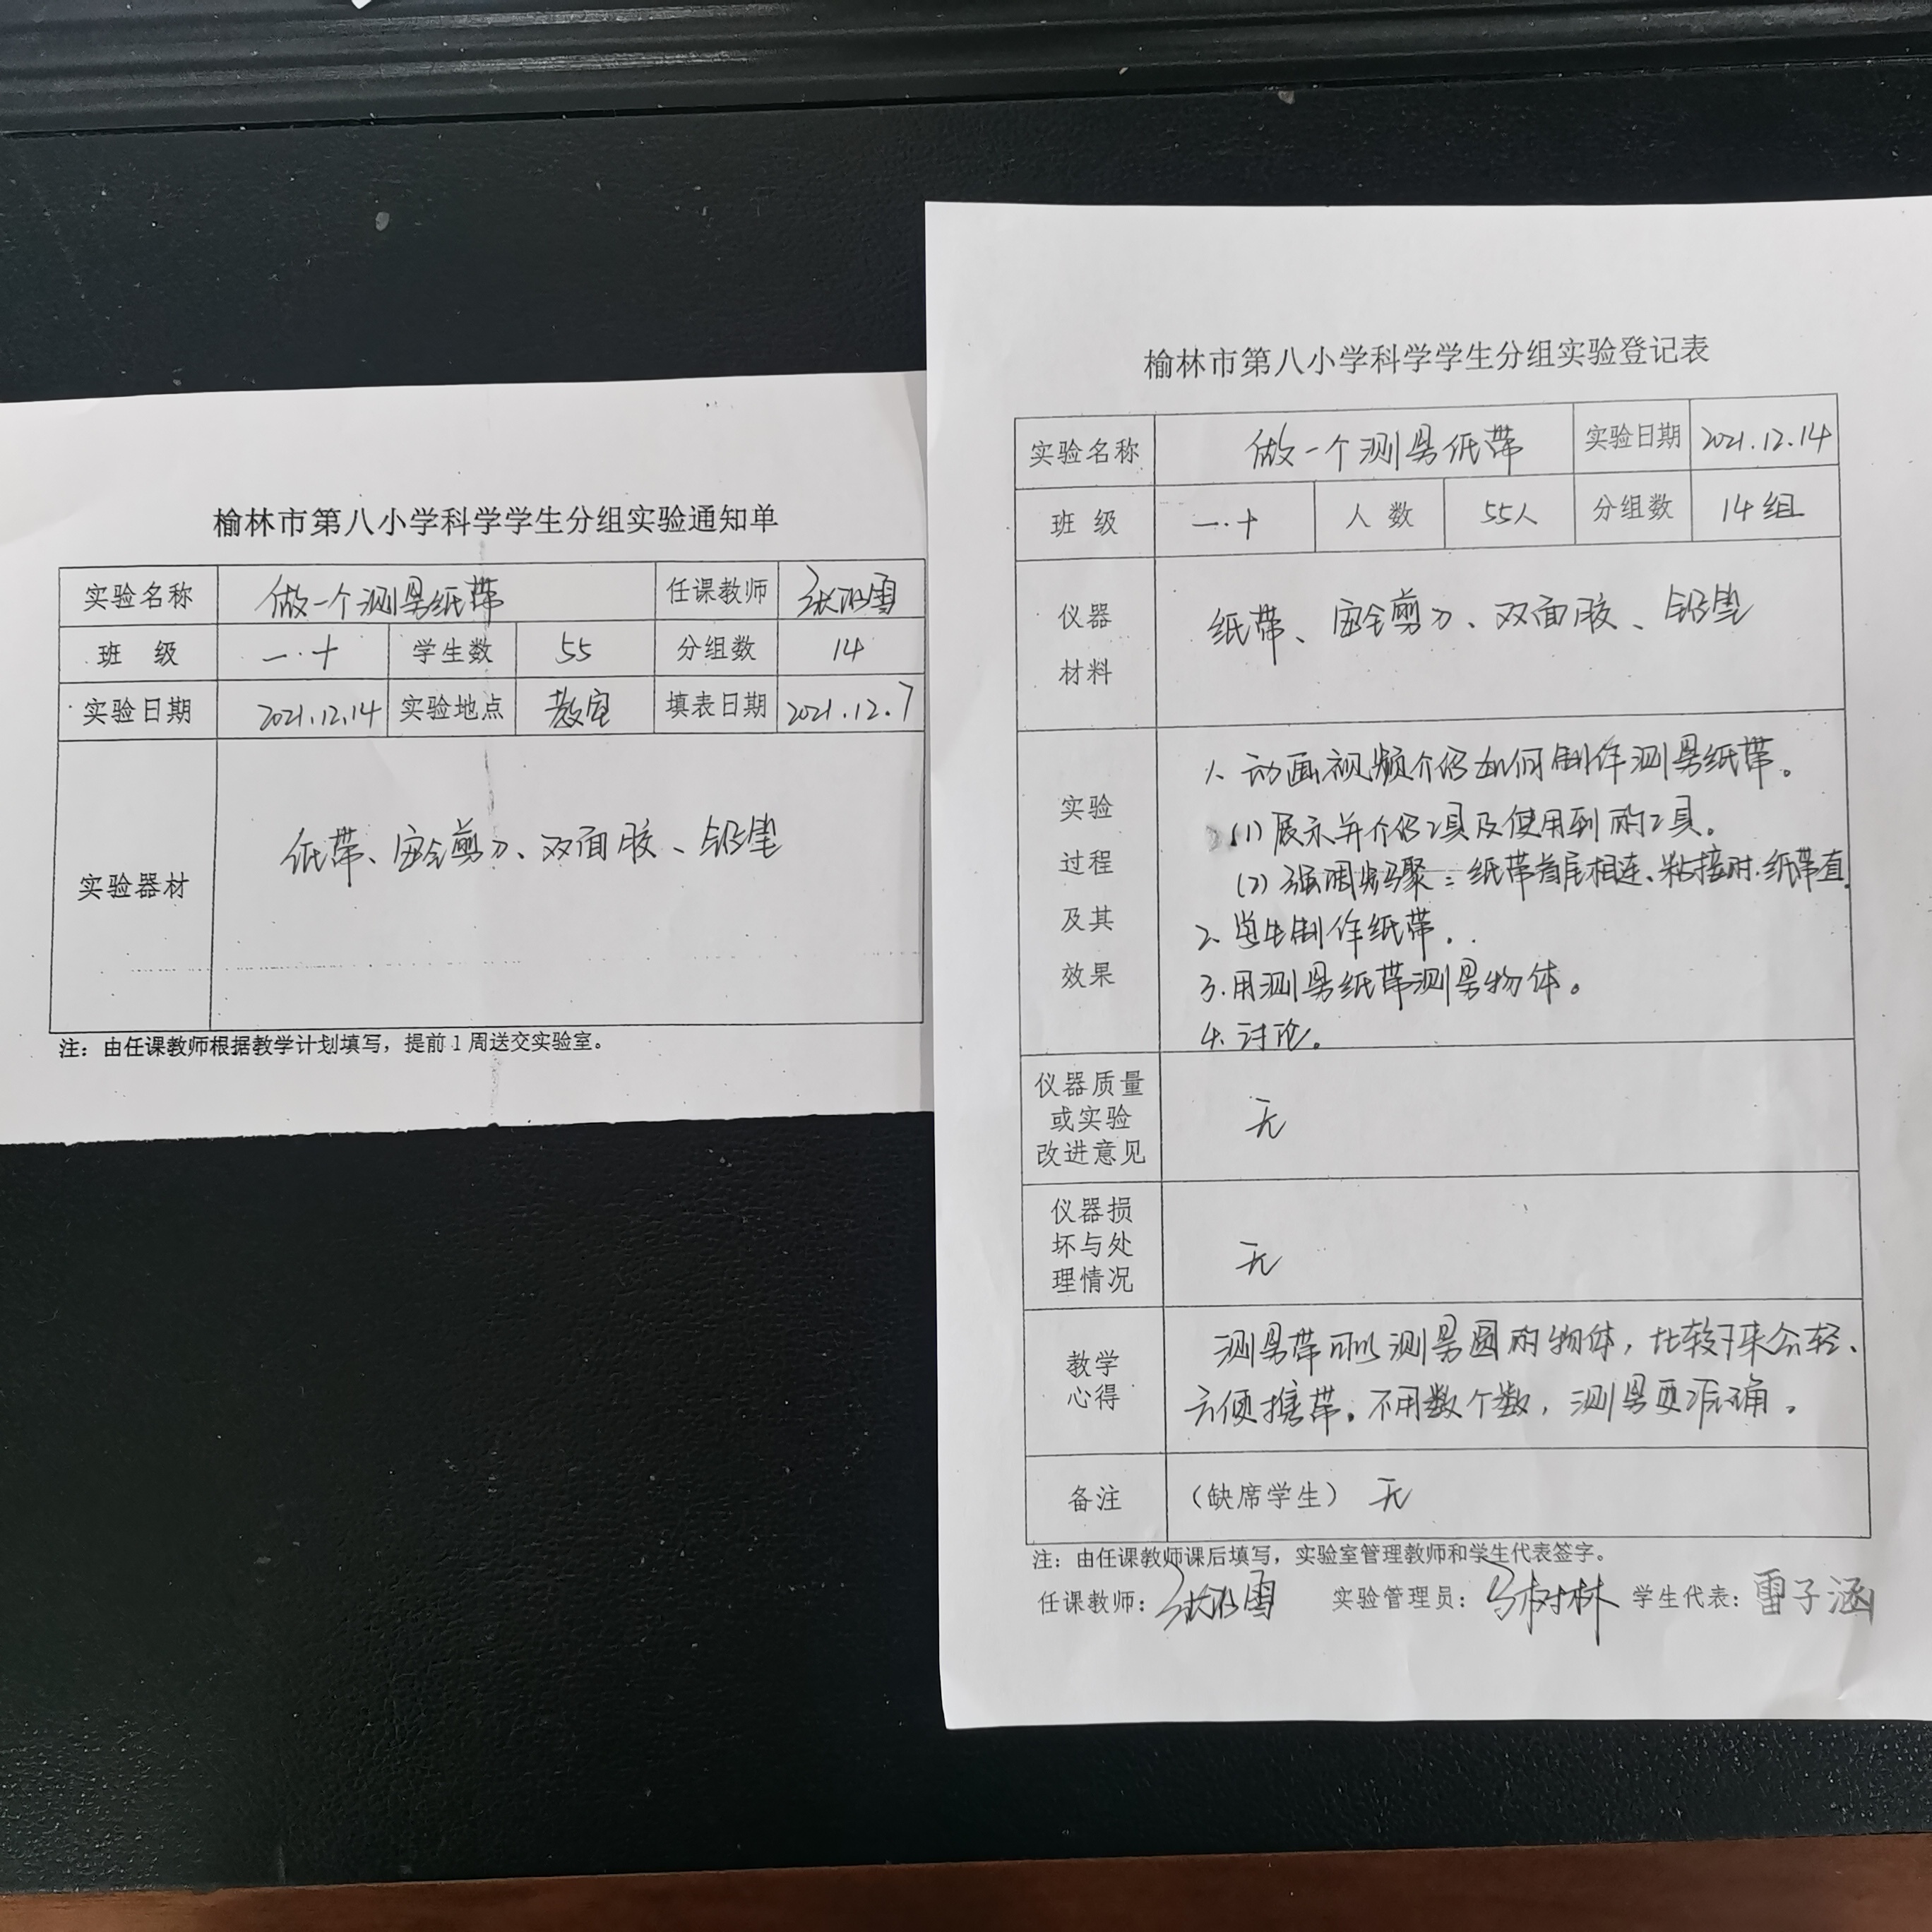 榆林市第八小学科学学生分组实验通知单
实验名称 做一个测量纸带 任课教师
班 级 一.十 学生数 55 分组数 14
实验日期 2021.12.14 实验地点 教室 填表日期 2021.12.7
实验器材 纸带、安全剪刀、双面胶、铅笔
注：由任课教师根据教学计划填写，提前1周送交实验室。
榆林市第八小学科学学生分组实验登记表
实验名称 做一个测量纸带 实验日期 2021.12.14
班 级 一.十 人 数 55人 分组数 14组
仪器
材料
纸带、安全剪刀、双面胶、铅笔
实验
过程
及其
效果
1. 动画视频介绍如何制作测量纸带。
(1) 展示并介绍工具及使用到的工具。
(2) 强调步骤：纸带首尾相连、粘接时.纸带直.
2. 学生制作纸带.
3. 用测量纸带测量物体。
4. 讨论。
仪器质量
或实验
改进意见
无
仪器损
坏与处
理情况
无
教学
心得
测量带可以测量圆的物体，比较下来会轻、
方便携带。不用数个数，测量更准确。
备注 （缺席学生） 无
注：由任课教师课后填写，实验室管理教师和学生代表签字。
任课教师： 实验管理员：马树林 学生代表：雷子涵